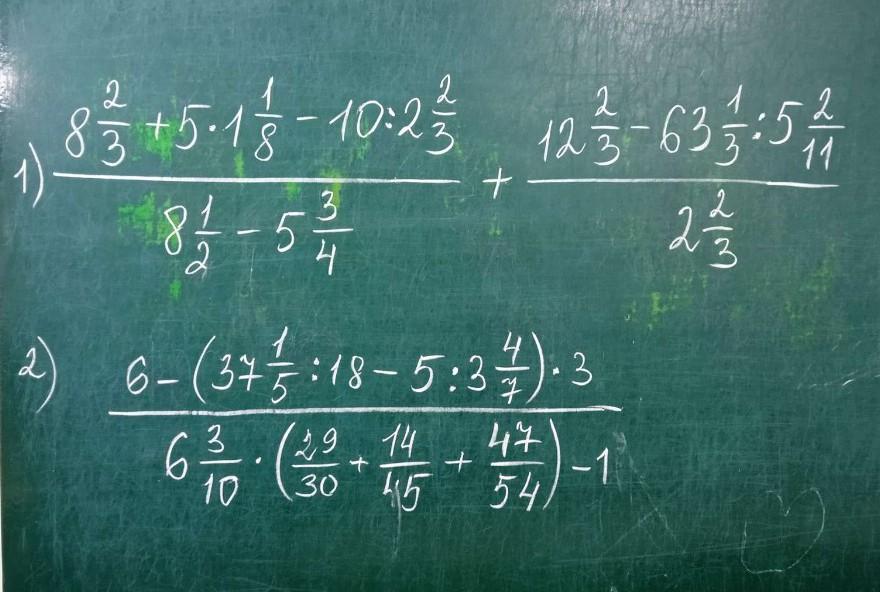 1) (8 2/3 + 5 · 1 1/8 − 10 : 2 2/3) / (8 1/2 − 5 3/4) + (12 2/3 − 63 1/3 : 5 2/11) / (2 2/3)
2) (6 − (37 1/5 : 18 − 5 : 3 4/7) · 3) / (6 3/10 · (29/30 + 14/45 + 47/54) − 1)